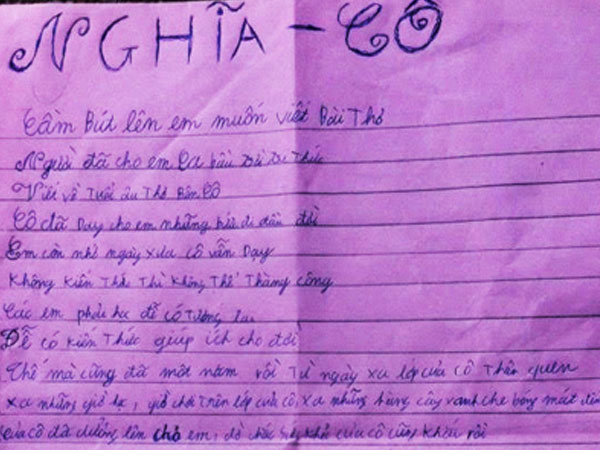 NGHĨA - CÔ
Cầm Bút lên em muốn viết Bài Thơ
Người đã cho em Cả bầu Trời Tri Thức
Viết về Tuổi ấu Thơ Bên Cô
Cô đã Dạy cho em những bài đầu đời
Em còn nhớ ngày xưa cô vẫn Dạy
Không Kiến Thức Thì Không Thể Thành công
Các em phải học để có tương lai
Để có Kiến Thức giúp ích cho đời
Thế mà cũng đã một năm rồi Từ ngày xa lớp của cô Thân quen
xa những giờ chơi trên lớp của cô, xa những hàng cây xanh che bóng mát
của cô đã dưỡng lên cho em, của cô cũng rồi